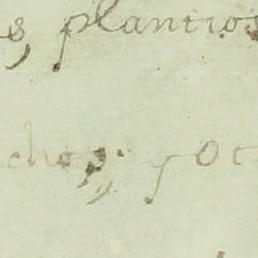 s, plantios
chos, y ot